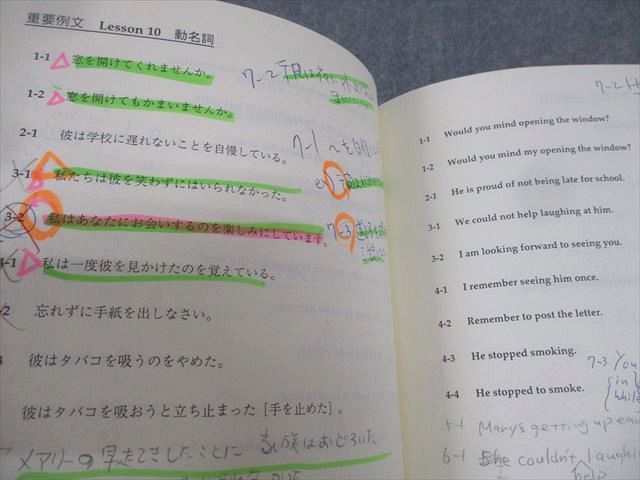 重要例文 Lesson 10 動名詞
1-1 窓を開けてくれませんか。
1-2 窓を開けてもかまいませんか。
2-1 彼は学校に遅れないことを自慢している。
3-1 私たちは彼を笑わずにはいられなかった。
3-2 私はあなたにお会いするのを楽しみにしています。
4-1 私は一度彼を見かけたのを覚えている。
忘れずに手紙を出しなさい。
彼はタバコを吸うのをやめた。
彼はタバコを吸おうと立ち止まった［手を止めた］。
メアリーの早起きしたことに 家族はおどろいた
7-2
7-1
7-3
7-2
1-1 Would you mind opening the window?
1-2 Would you mind my opening the window?
2-1 He is proud of not being late for school.
3-1 We could not help laughing at him.
3-2 I am looking forward to seeing you.
4-1 I remember seeing him once.
4-2 Remember to post the letter.
4-3 He stopped smoking.
7-3 You
4-4 He stopped to smoke.
in
while
5-1 Mary's getting up ea
6-1 She couldn't laughin
help